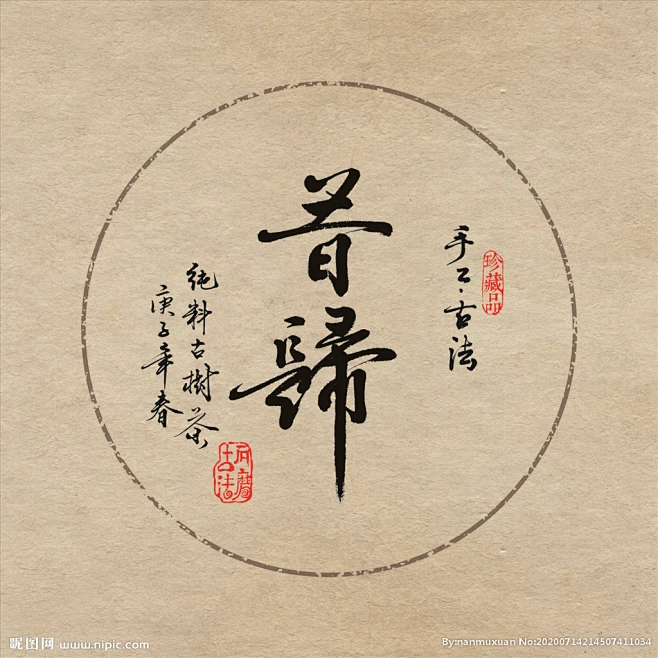 手工·古法
珍藏品
昔歸
純料古樹茶
庚子年春
石磨古法
昵图网 www.nipic.com
By:nanmuxuan No:20200714214507411034